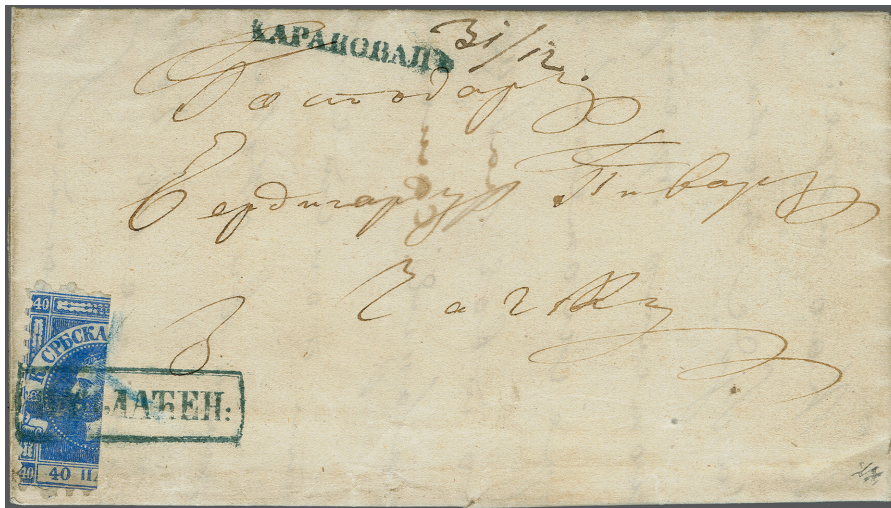 КАРАНОВАЦЪ 31/12.
Господару
Бердигарду Пивару
У Чачку
40
К. СРБСКА
НАПЛАЋЕН:
40 40 ПА